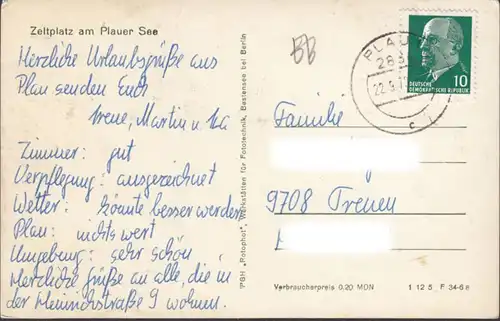 Zeltplatz am Plauer See
BB
Herzliche Urlaubsgrüße aus
Plau senden Euch
Irene, Martin u.
Zimmer: gut
Verpflegung: ausgezeichnet
Wetter: könnte besser werden
Plau: nichts wert
Umgebung: sehr schön
Herzliche Grüße an alle, die in
der Heinrichstraße 9 wohnen.
PGH „Rotophot", Werkstätten für Fototechnik, Bestensee bei Berlin
PLAU
283
22.9.7
c
10
DEUTSCHE
DEMOKRATISCHE REPUBLIK
Familie
9708 Treuen
Verbraucherpreis 0,20 MDN
1 12 5 F 34-68